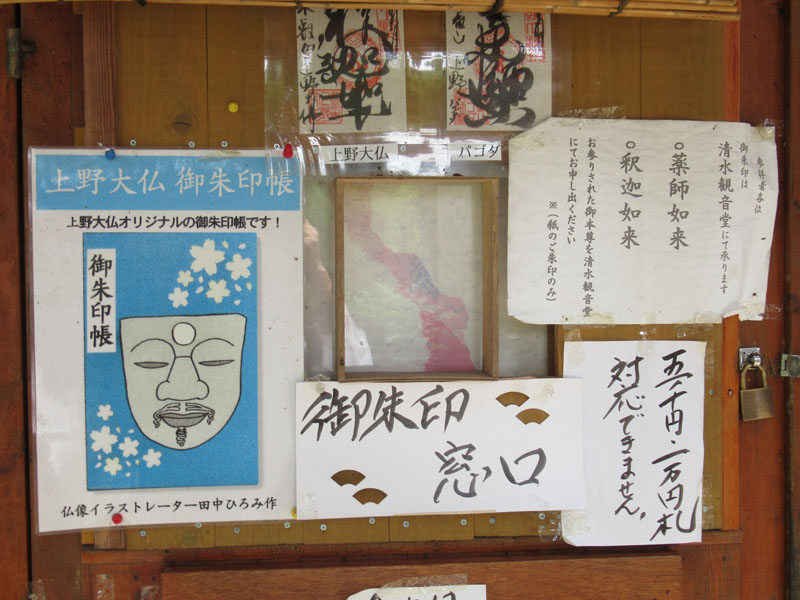 上野大仏
パゴダ
上野大仏 御朱印帳
上野大仏オリジナルの御朱印帳です！
御朱印帳
仏像イラストレーター田中ひろみ作
参拝者各位
御朱印は
清水観音堂にて承ります
○薬師如来
○釈迦如来
お参りされた御本尊を清水観音堂
にてお申し出ください
※（紙のご朱印のみ）
御朱印
窓口
五千円・一万円札
対応できません。